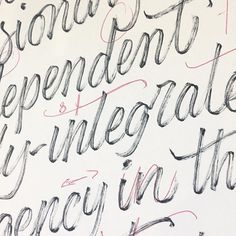 sionary
ependent
y-integrate
gency in th